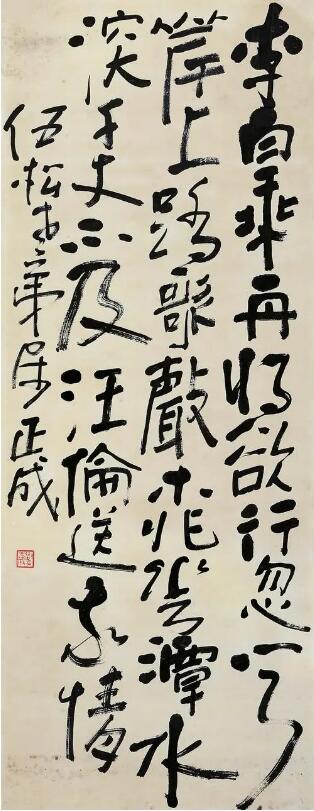 李白乘舟将欲行忽闻
岸上踏歌聲桃花潭水
深千尺不及汪倫送我情
伍松 正成